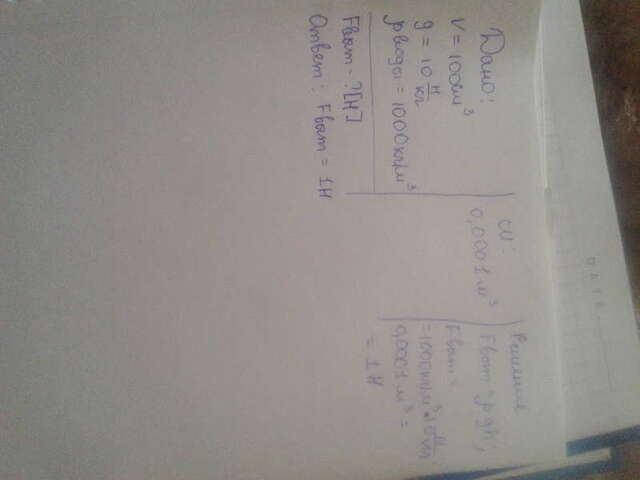 Дано:
V = 100см³
g = 10 Н/кг
ρ воды = 1000кг/м³
Fвыт - ?[Н]
Ответ: Fвыт = 1Н
СИ:
0,0001 м³
Решение
Fвыт = ρgV,
Fвыт =
= 1000кг/м³ · 10 Н/кг
0,0001 м³ =
= 1Н